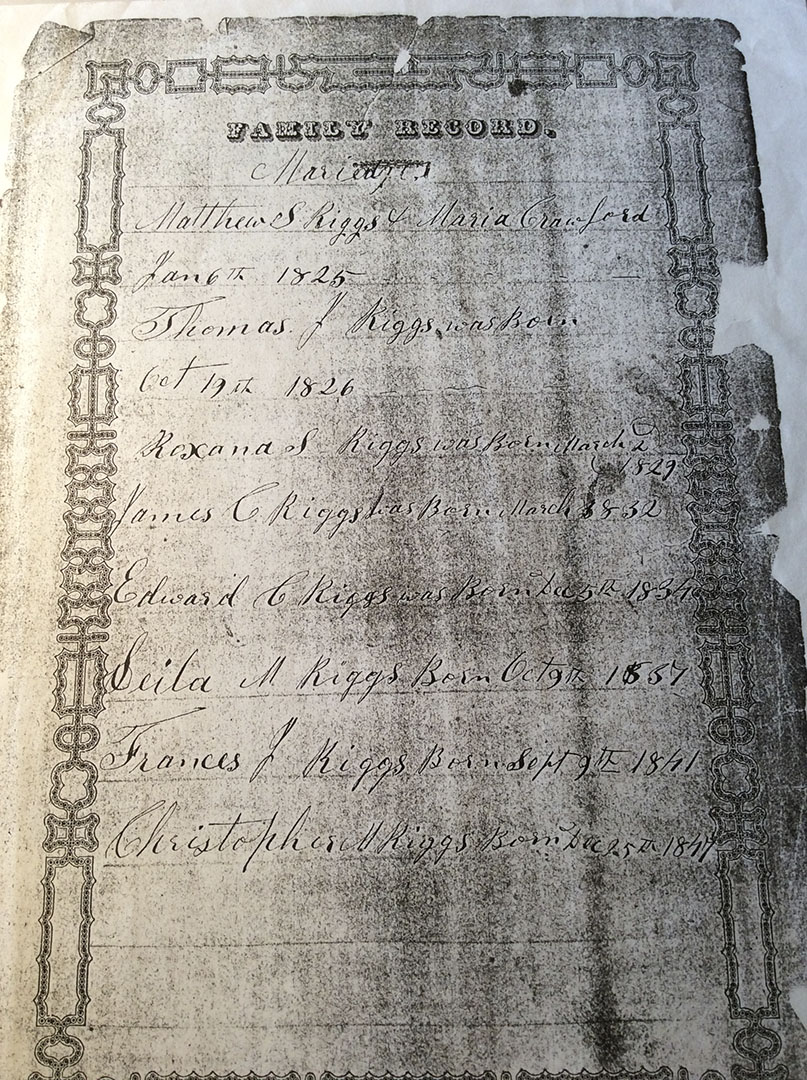 FAMILY RECORD.
Matthew S Riggs & Maria Crawford
Jan 6th 1825
Thomas. J Riggs was Born
Oct 19th 1826
Roxana S Riggs was Born March 2
1829
James C Riggs was Born March 1832
Edward C Riggs was Born Dec 5th 1834
Leila M Riggs Born Oct 9th 1837
Frances J Riggs Born Sept 9th 1841
Christopher M Riggs Born Dec 25th